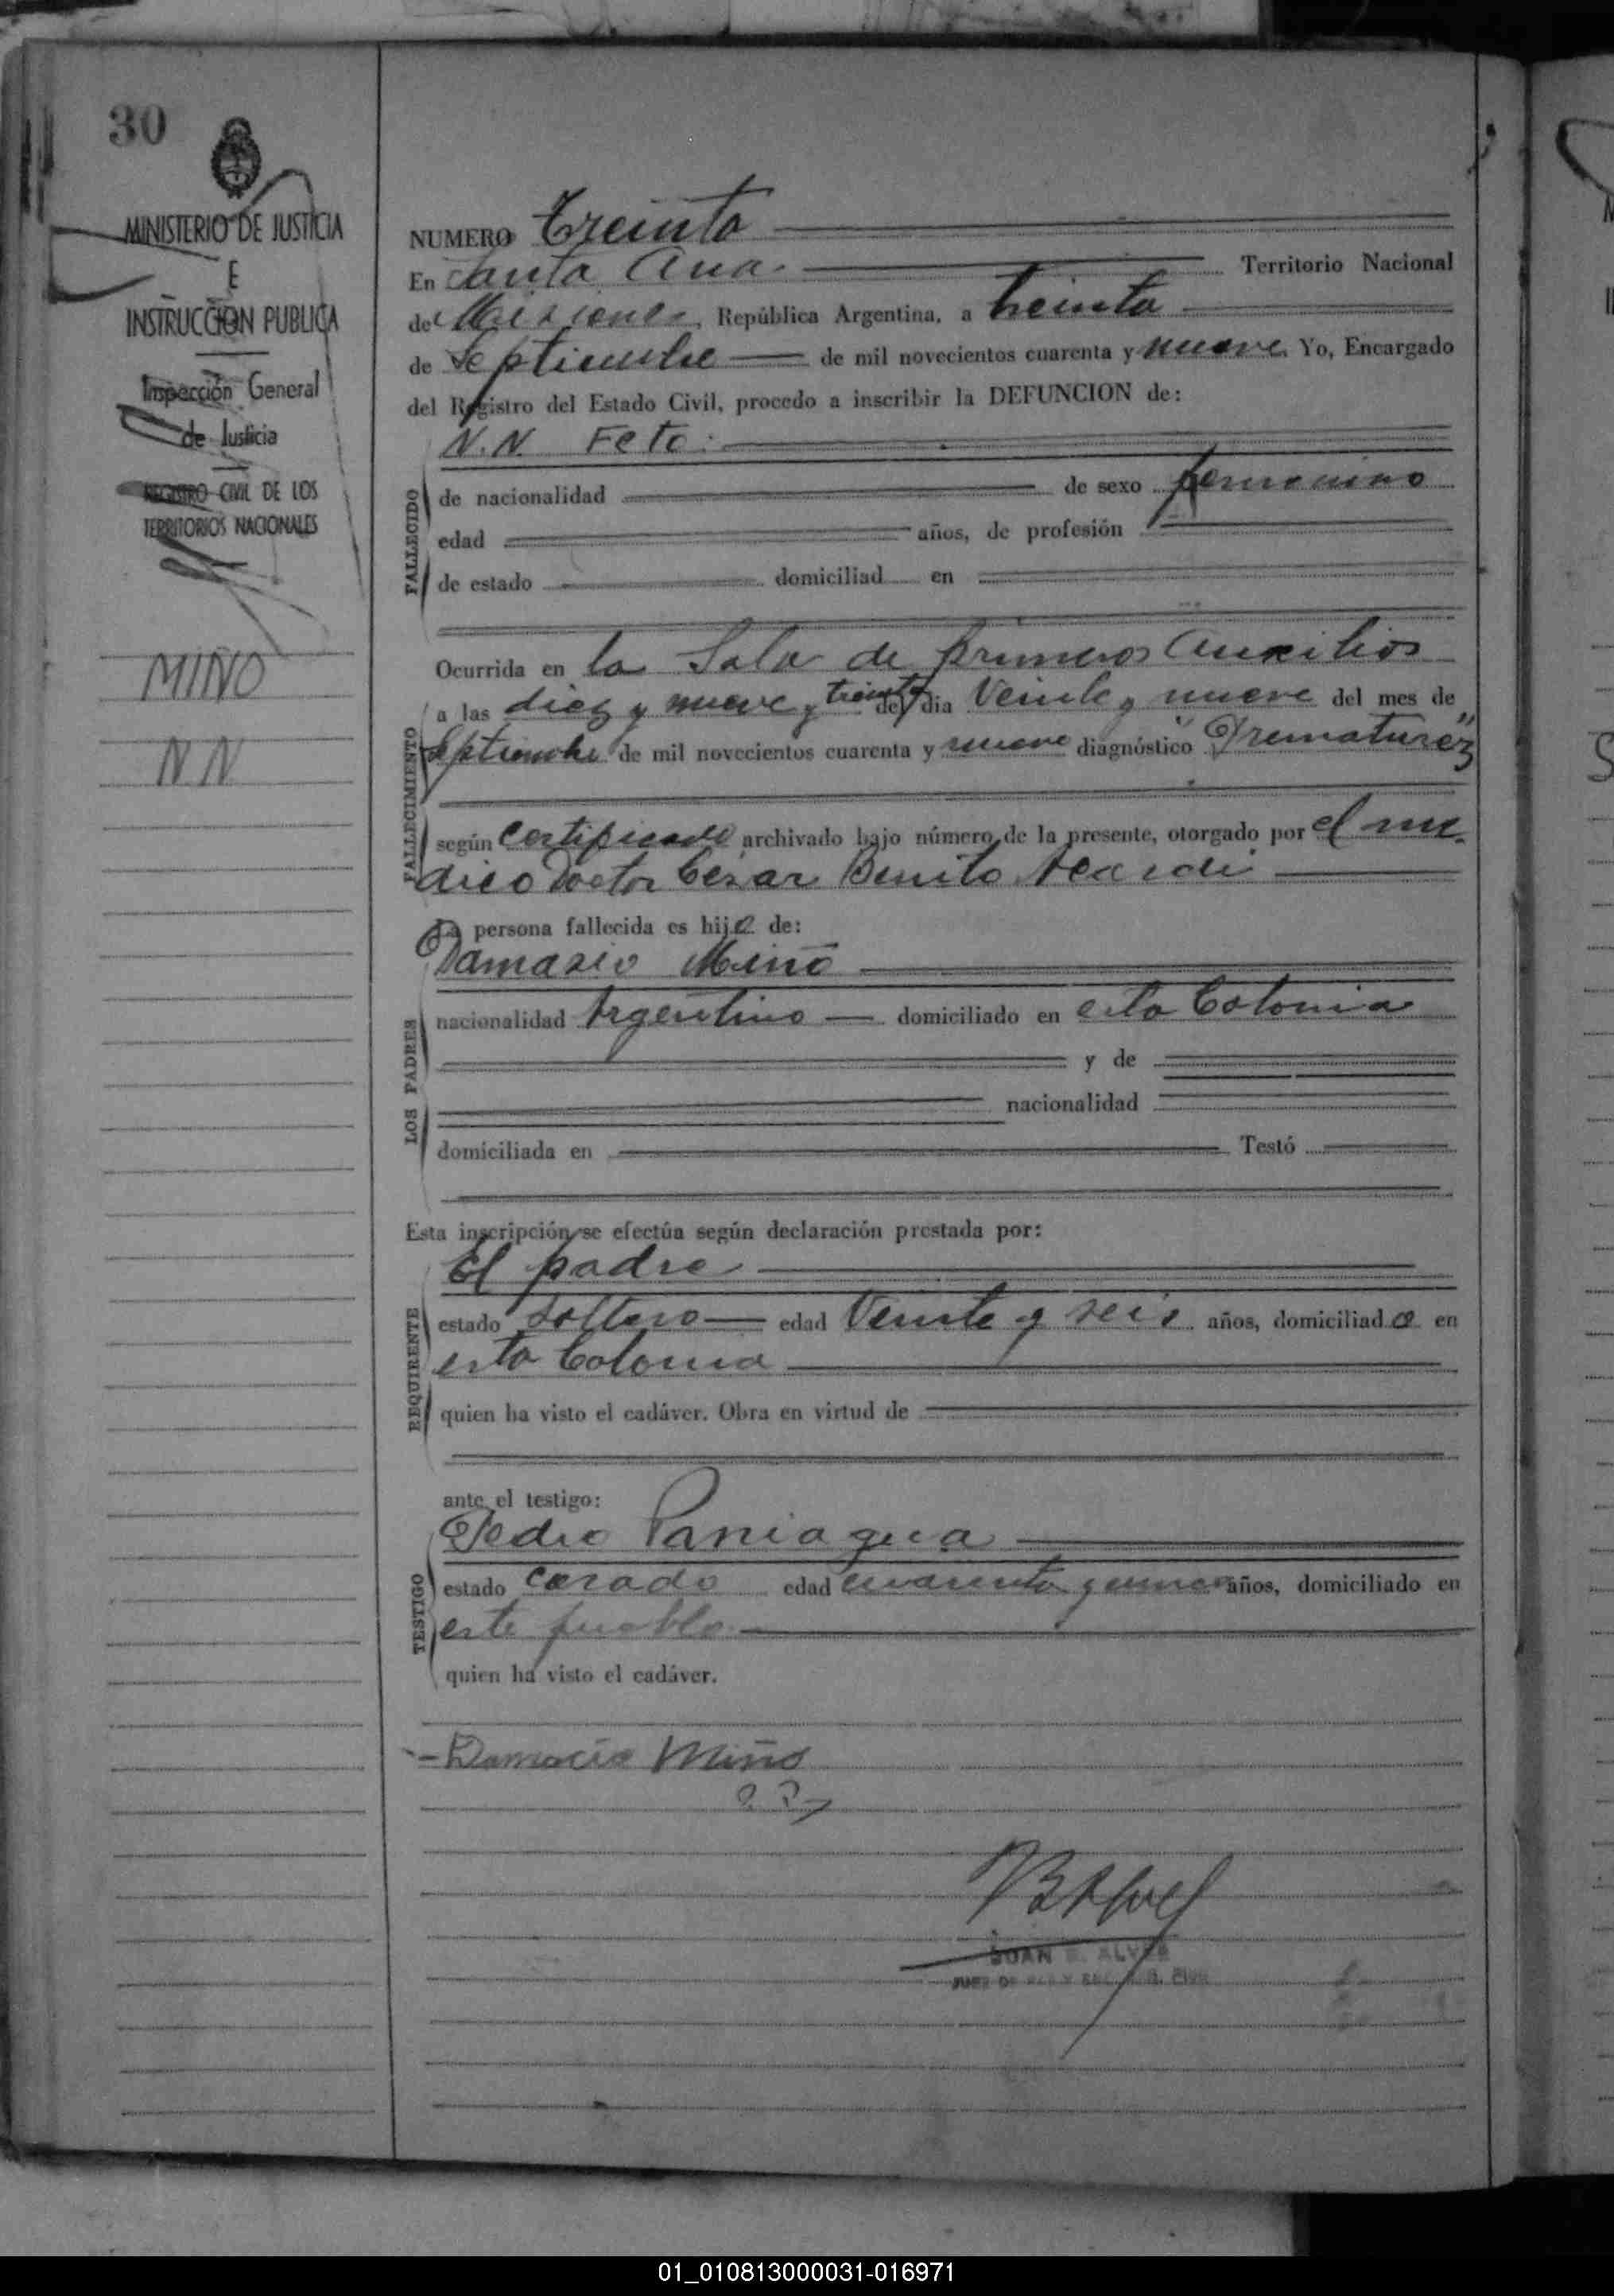 30
MINISTERIO DE JUSTICIA
E
INSTRUCCION PUBLICA
Inspección General
de Justicia
REGISTRO CIVIL DE LOS
TERRITORIOS NACIONALES
MIÑO
N N
NUMERO Treinta
En Santa Ana Territorio Nacional
de Misiones, República Argentina, a treinta
de Septiembre de mil novecientos cuarenta y nueve Yo, Encargado
del Registro del Estado Civil, procedo a inscribir la DEFUNCION de:
N.N. Feto.
FALLECIDO
de nacionalidad de sexo femenino
edad años, de profesión
de estado domiciliad en
FALLECIMIENTO
Ocurrida en la Sala de primeros Auxilios
a las diez y nueve y treinta del dia Veinte y nueve del mes de
Septiembre de mil novecientos cuarenta y nueve diagnóstico "Prematurez"
según certificado archivado bajo número de la presente, otorgado por el me-
dico Doctor César Benito
La persona fallecida es hija de:
LOS PADRES
Damasio Miño
nacionalidad Argentino domiciliado en esta Colonia
y de
nacionalidad
domiciliada en Testó
Esta inscripción se efectúa según declaración prestada por:
REQUIRENTE
El padre
estado soltero edad Veinte y seis años, domiciliado en
esta Colonia
quien ha visto el cadáver. Obra en virtud de
ante el testigo:
TESTIGO
Pedro Paniagua
estado casado edad cuarenta y cinco años, domiciliado en
este pueblo
quien ha visto el cadáver.
Damacio Miño
JUAN B. ALVES
JUEZ DE PAZ Y
01_010813000031-016971